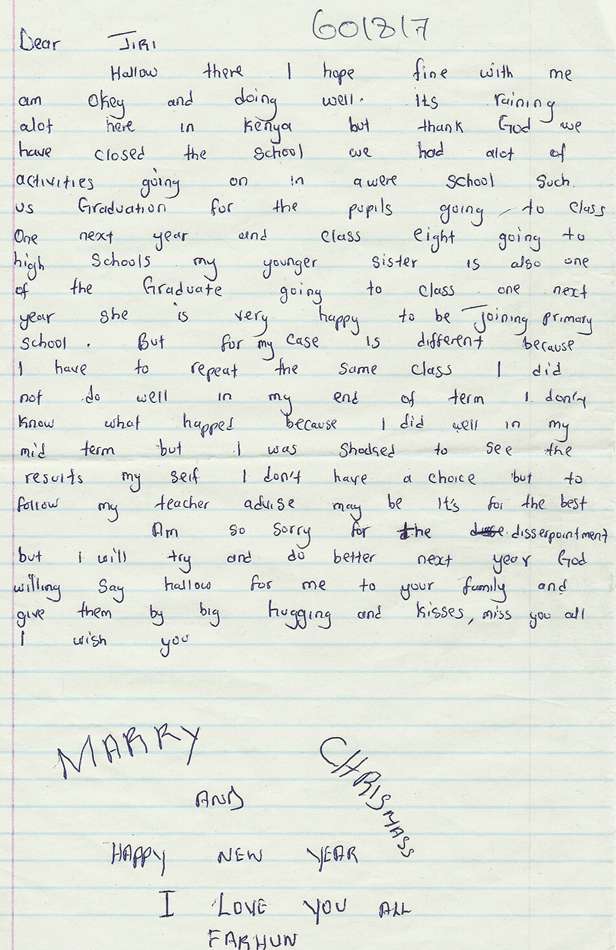 60/8/7
Dear JIRI
Hallow there I hope fine with me
am Okey and doing well. Its raining
alot here in Kenya but thank God we
have closed the school we had alot of
activities going on in awere school Such
us Graduation for the pupils going to class
One next year and class eight going to
high Schools my younger sister is also one
of the Graduate going to class one next
year she is very happy to be Joining primary
school. But for my case is different because
I have to repeat the same class I did
not do well in my end of term I don't
know what happed because I did well in my
mid term but I was Shodsed to see the
results my self I don't have a choice but to
follow my teacher advise may be It's for the best
Am so sorry for the disserpointment
but i will try and do better next year God
willing Say hallow for me to your family and
give them by big hugging and kisses, miss you all
I wish you
MARRY CHRISMASS
AND
HAPPY NEW YEAR
I LOVE YOU ALL
FARHUN